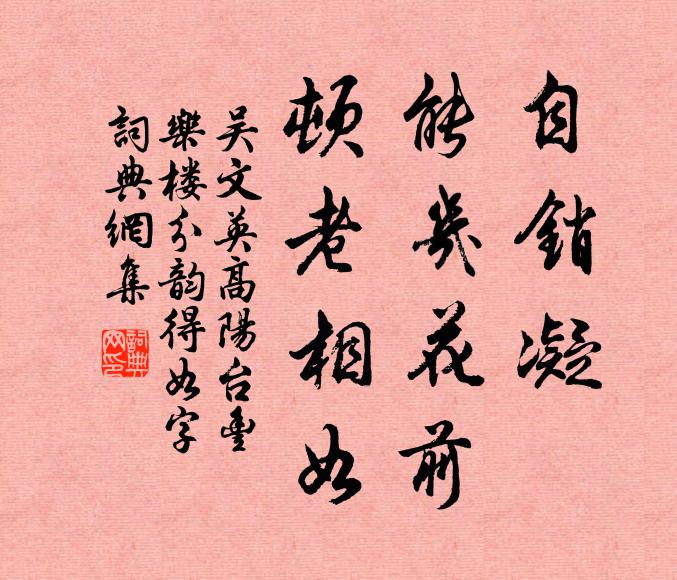 自銷凝
能幾花前
頓老相如
吳文英高陽台豐
樂楼分韵得如字
詞典網集
詞典
网印